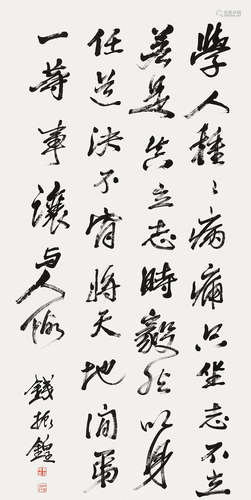 學人種〻病痛只坐志不立
若是真立志時毅然以身
任道決不肯將天地間第
一等事讓與人做
錢振鍠